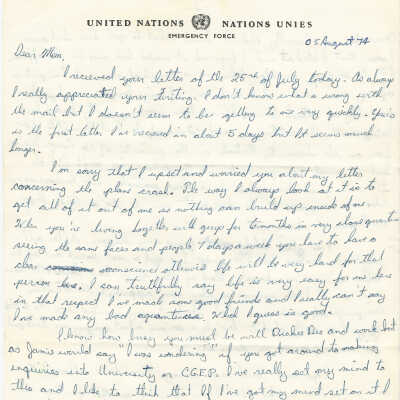 UNITED NATIONS NATIONS UNIES
EMERGENCY FORCE
05 August 74
Dear Mom,
I recieved your letter of the 25th of July today. As always
I really appreciated your writing. I don't know what's wrong with
the mail but I doesn't seem to be getting to me very quickly. This
is the first letter I've recieved in about 5 days but it seems much
longer.
I'm sorry that I upset and worried you about my letter
concerning the plane crash. The way I always look at it is to
get all of it out of me so nothing can build up inside of me
When you're living together with guys for 6 months in very close quarters
seeing the same faces and people 7 days a week you have to have a
clear conscience otherwise life will be very hard for that
person. I can truthfully say life is very easy for me here
in that respect I've made some good friends and I really can't say
I've made any bad aquantances. Which I guess is good.
I know how busy you must be with and work but
as Jamie would say "I was wondering" if you got around to making
enquiries into University or C.G.E.P. I've really set my mind to
this and I like to think that if I've got my mind set on it I